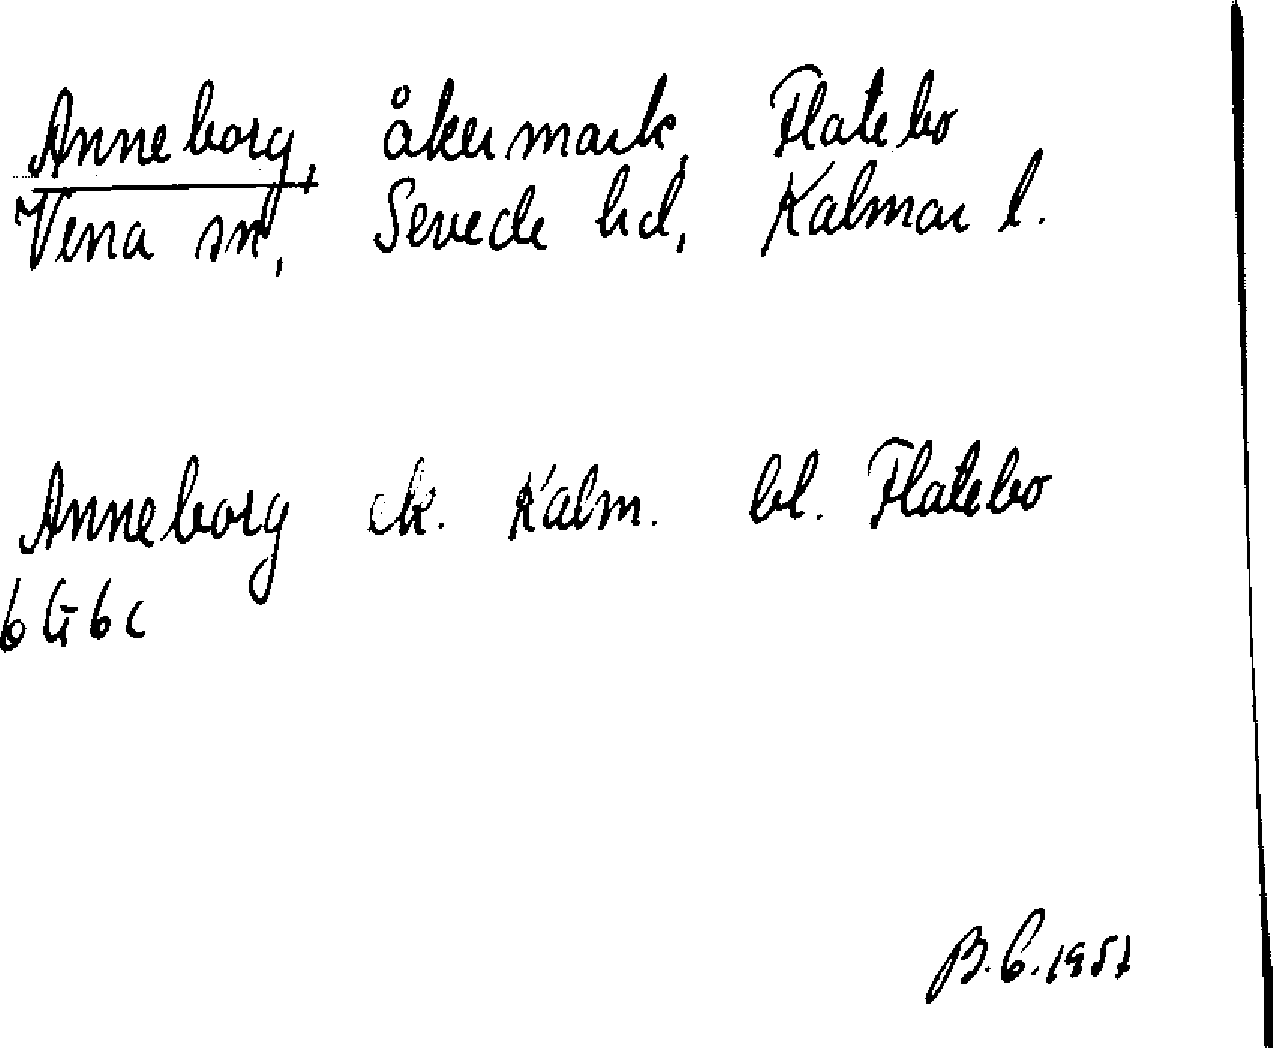 Anneborg, åkermark, Flatebo
Vena sn, Sevede hd, Kalmar l.
Anneborg ek. Kalm. bl. Flatebo
6G6c
B.C. 1957